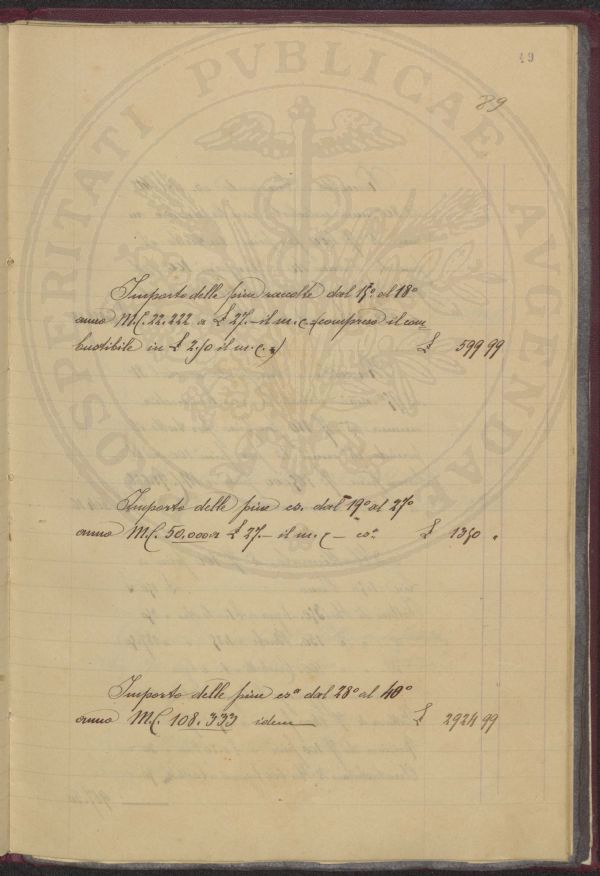 49
89
PROSPERITATI PVBLICAE AVGENDAE
Importo delle pine raccolte dal 15º al 18º
anno M.C. 22.222 a £ 27.– il m.c. (compreso il com-
bustibile in £ 2.50 il m.c.)  £ 599 99
Importo delle pine cs. dal 19º al 27º
anno M.C. 50.000 a £ 27.– il m.c – csª  £ 1350 „
Importo delle pine csª dal 28º al 40º
anno M.C. 108.333 idem  £ 2924 99